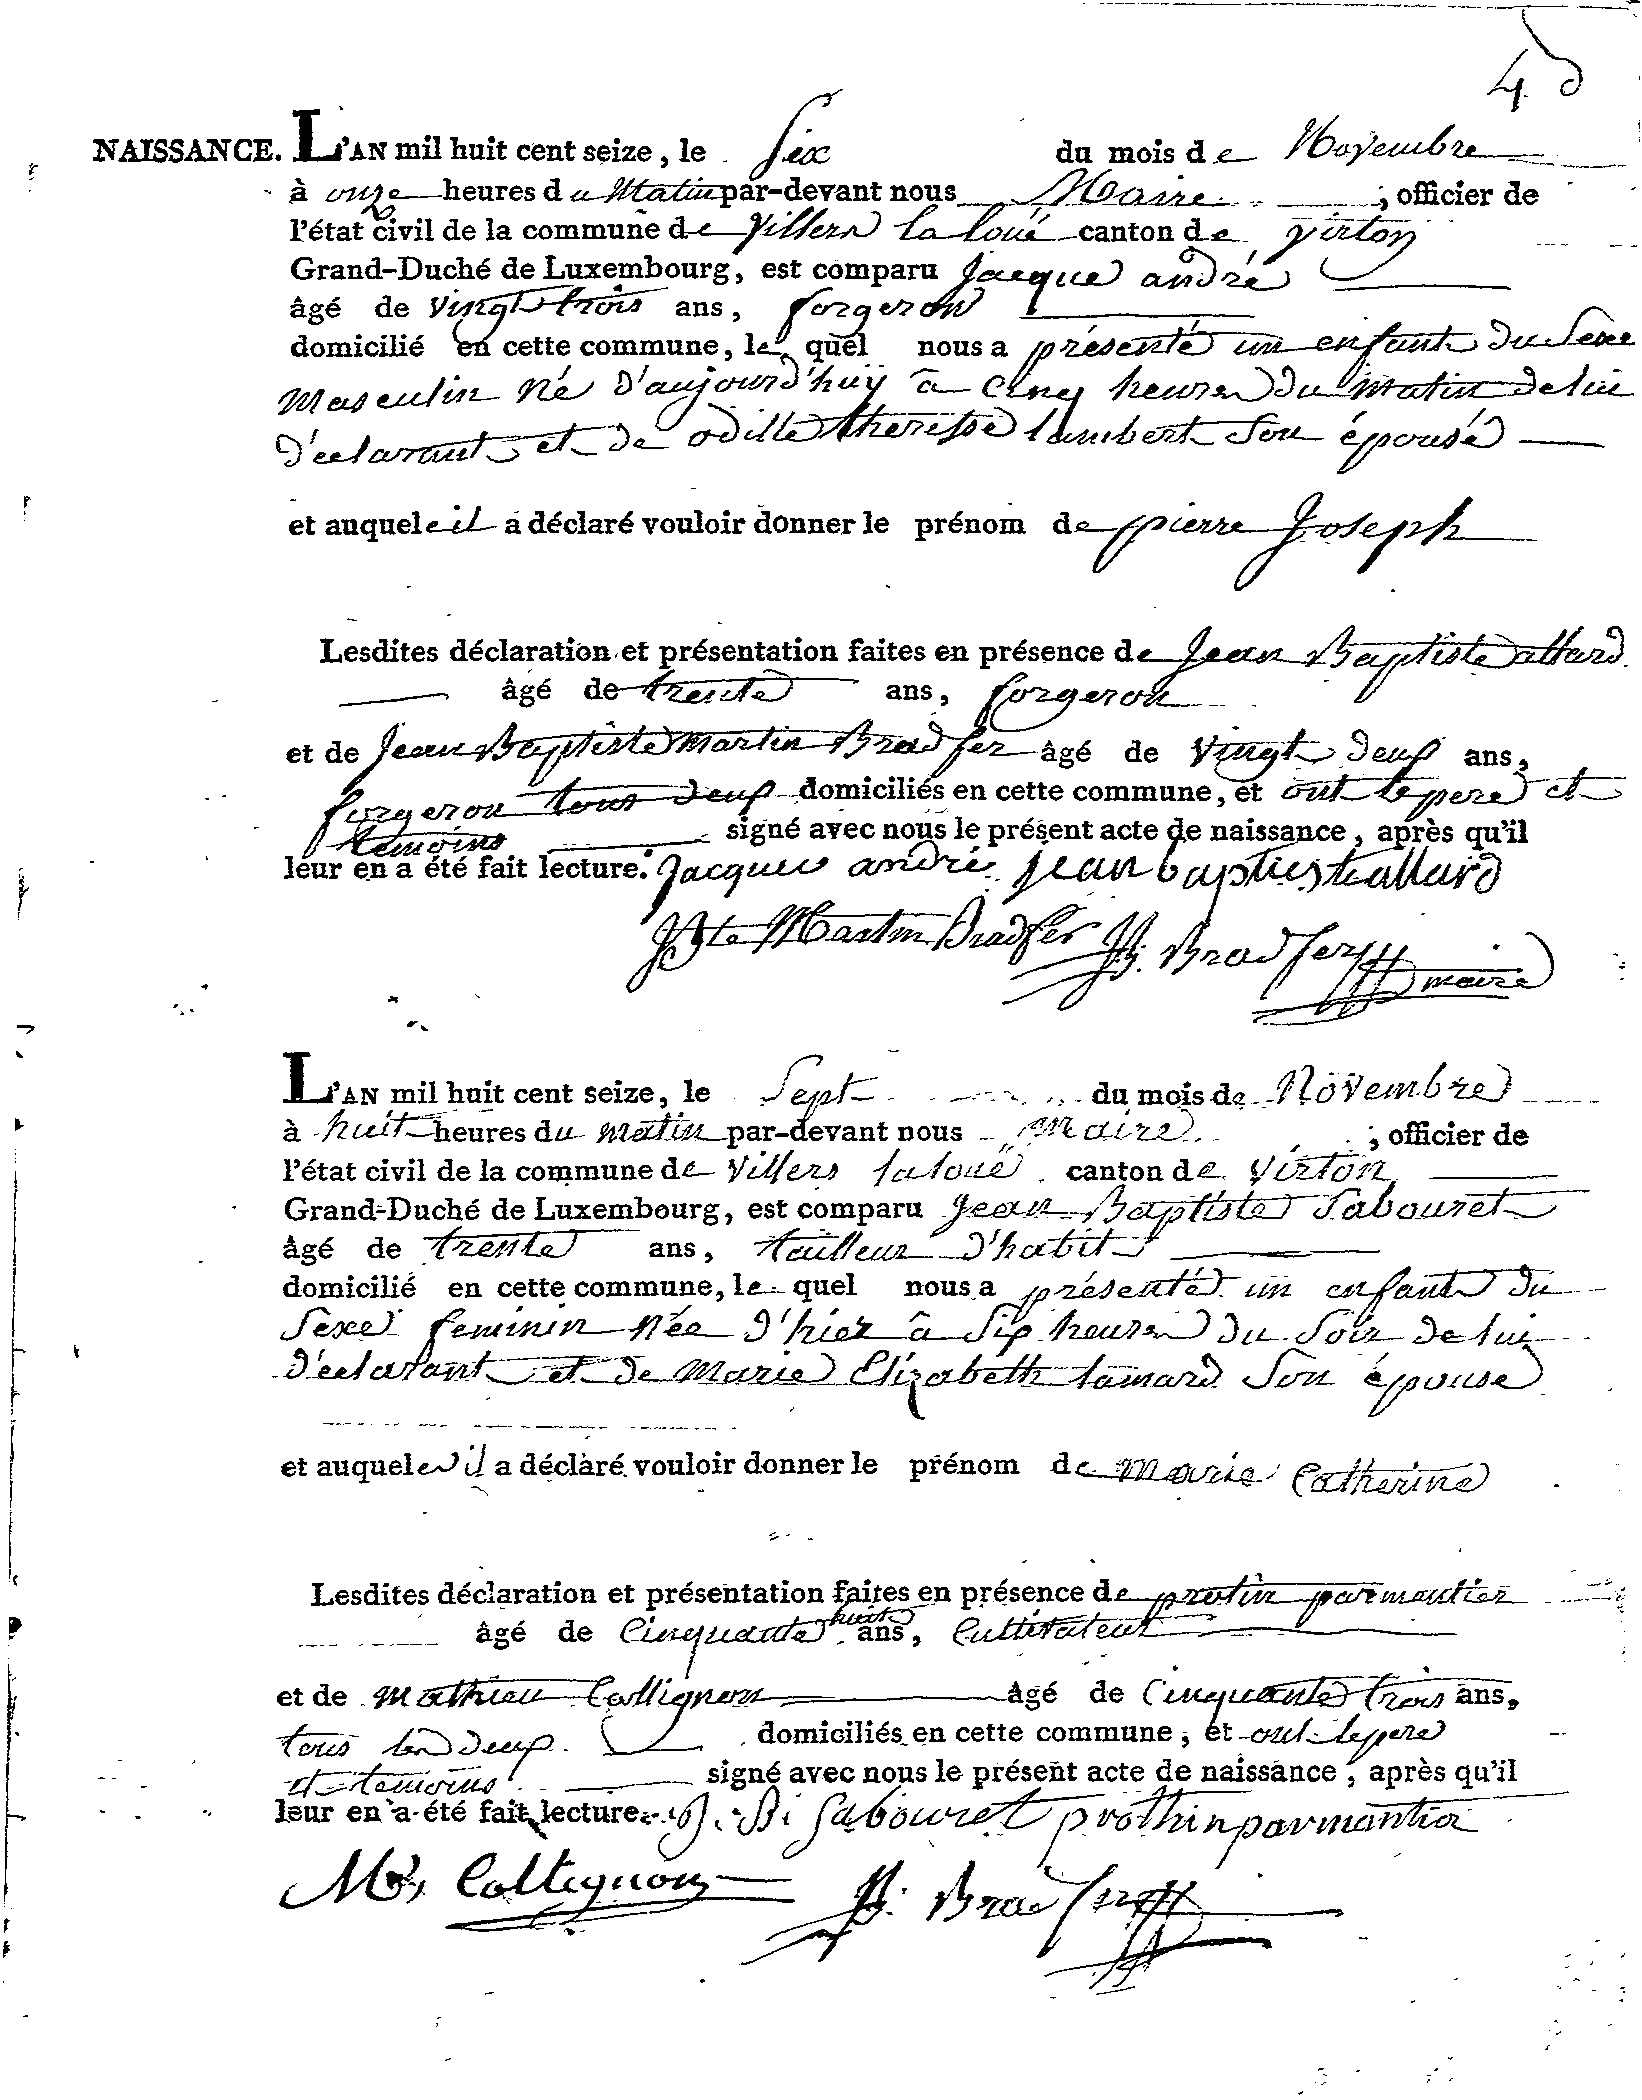 4
NAISSANCE. L'AN mil huit cent seize, le Six du mois de Novembre
à onze heures du Matin par-devant nous Maire, officier de
l'état civil de la commune de Villers la loué canton de Virton
Grand-Duché de Luxembourg, est comparu Jacque andré
âgé de Vingt trois ans, forgeron
domicilié en cette commune, le quel nous a présenté un enfant du Sexe
Masculin né d'aujourd'huÿ â Cinq heures du Matin de lui
d'éclarant et de odille theresse lambert Son épousé
et auquel e il a déclaré vouloir donner le prénom de pierre Joseph
Lesdites déclaration et présentation faites en présence de Jean Baptiste allard
âgé de trente ans, forgeron
et de Jean Baptiste Martin Bradfer âgé de Vingt deux ans,
forgeron tous deux domiciliés en cette commune, et ont le pere et
temoins signé avec nous le présent acte de naissance, après qu'il
leur en a été fait lecture. Jacques andré jean baptiest allard
JBte Martin Bradfer JB. Bradfer
maire
L'AN mil huit cent seize, le Sept du mois de Novembre
à huit heures du matin par-devant nous maire, officier de
l'état civil de la commune de Villers laloué canton de Virton
Grand-Duché de Luxembourg, est comparu Jean Baptiste Sabouret
âgé de trente ans, tailleur d'habit
domicilié en cette commune, le quel nous a présenté un enfant du
Sexe feminin née d'hier â Six heures du Soir de lui
d'éclarant et de Marie Elizabeth lamard Son épouse
et auquel e il a déclaré vouloir donner le prénom de marie Catherine
Lesdites déclaration et présentation faites en présence de protin parmentier
âgé de Cinquante huit ans, Cultivateur
et de Mathieu Collignon âgé de Cinquante trois ans,
tous les deux domiciliés en cette commune, et ont le pere
et temoins signé avec nous le présent acte de naissance, après qu'il
leur en a été fait lecture. J. B. Sabouret prothin parmantier
M. Collignon JB. Bradfer